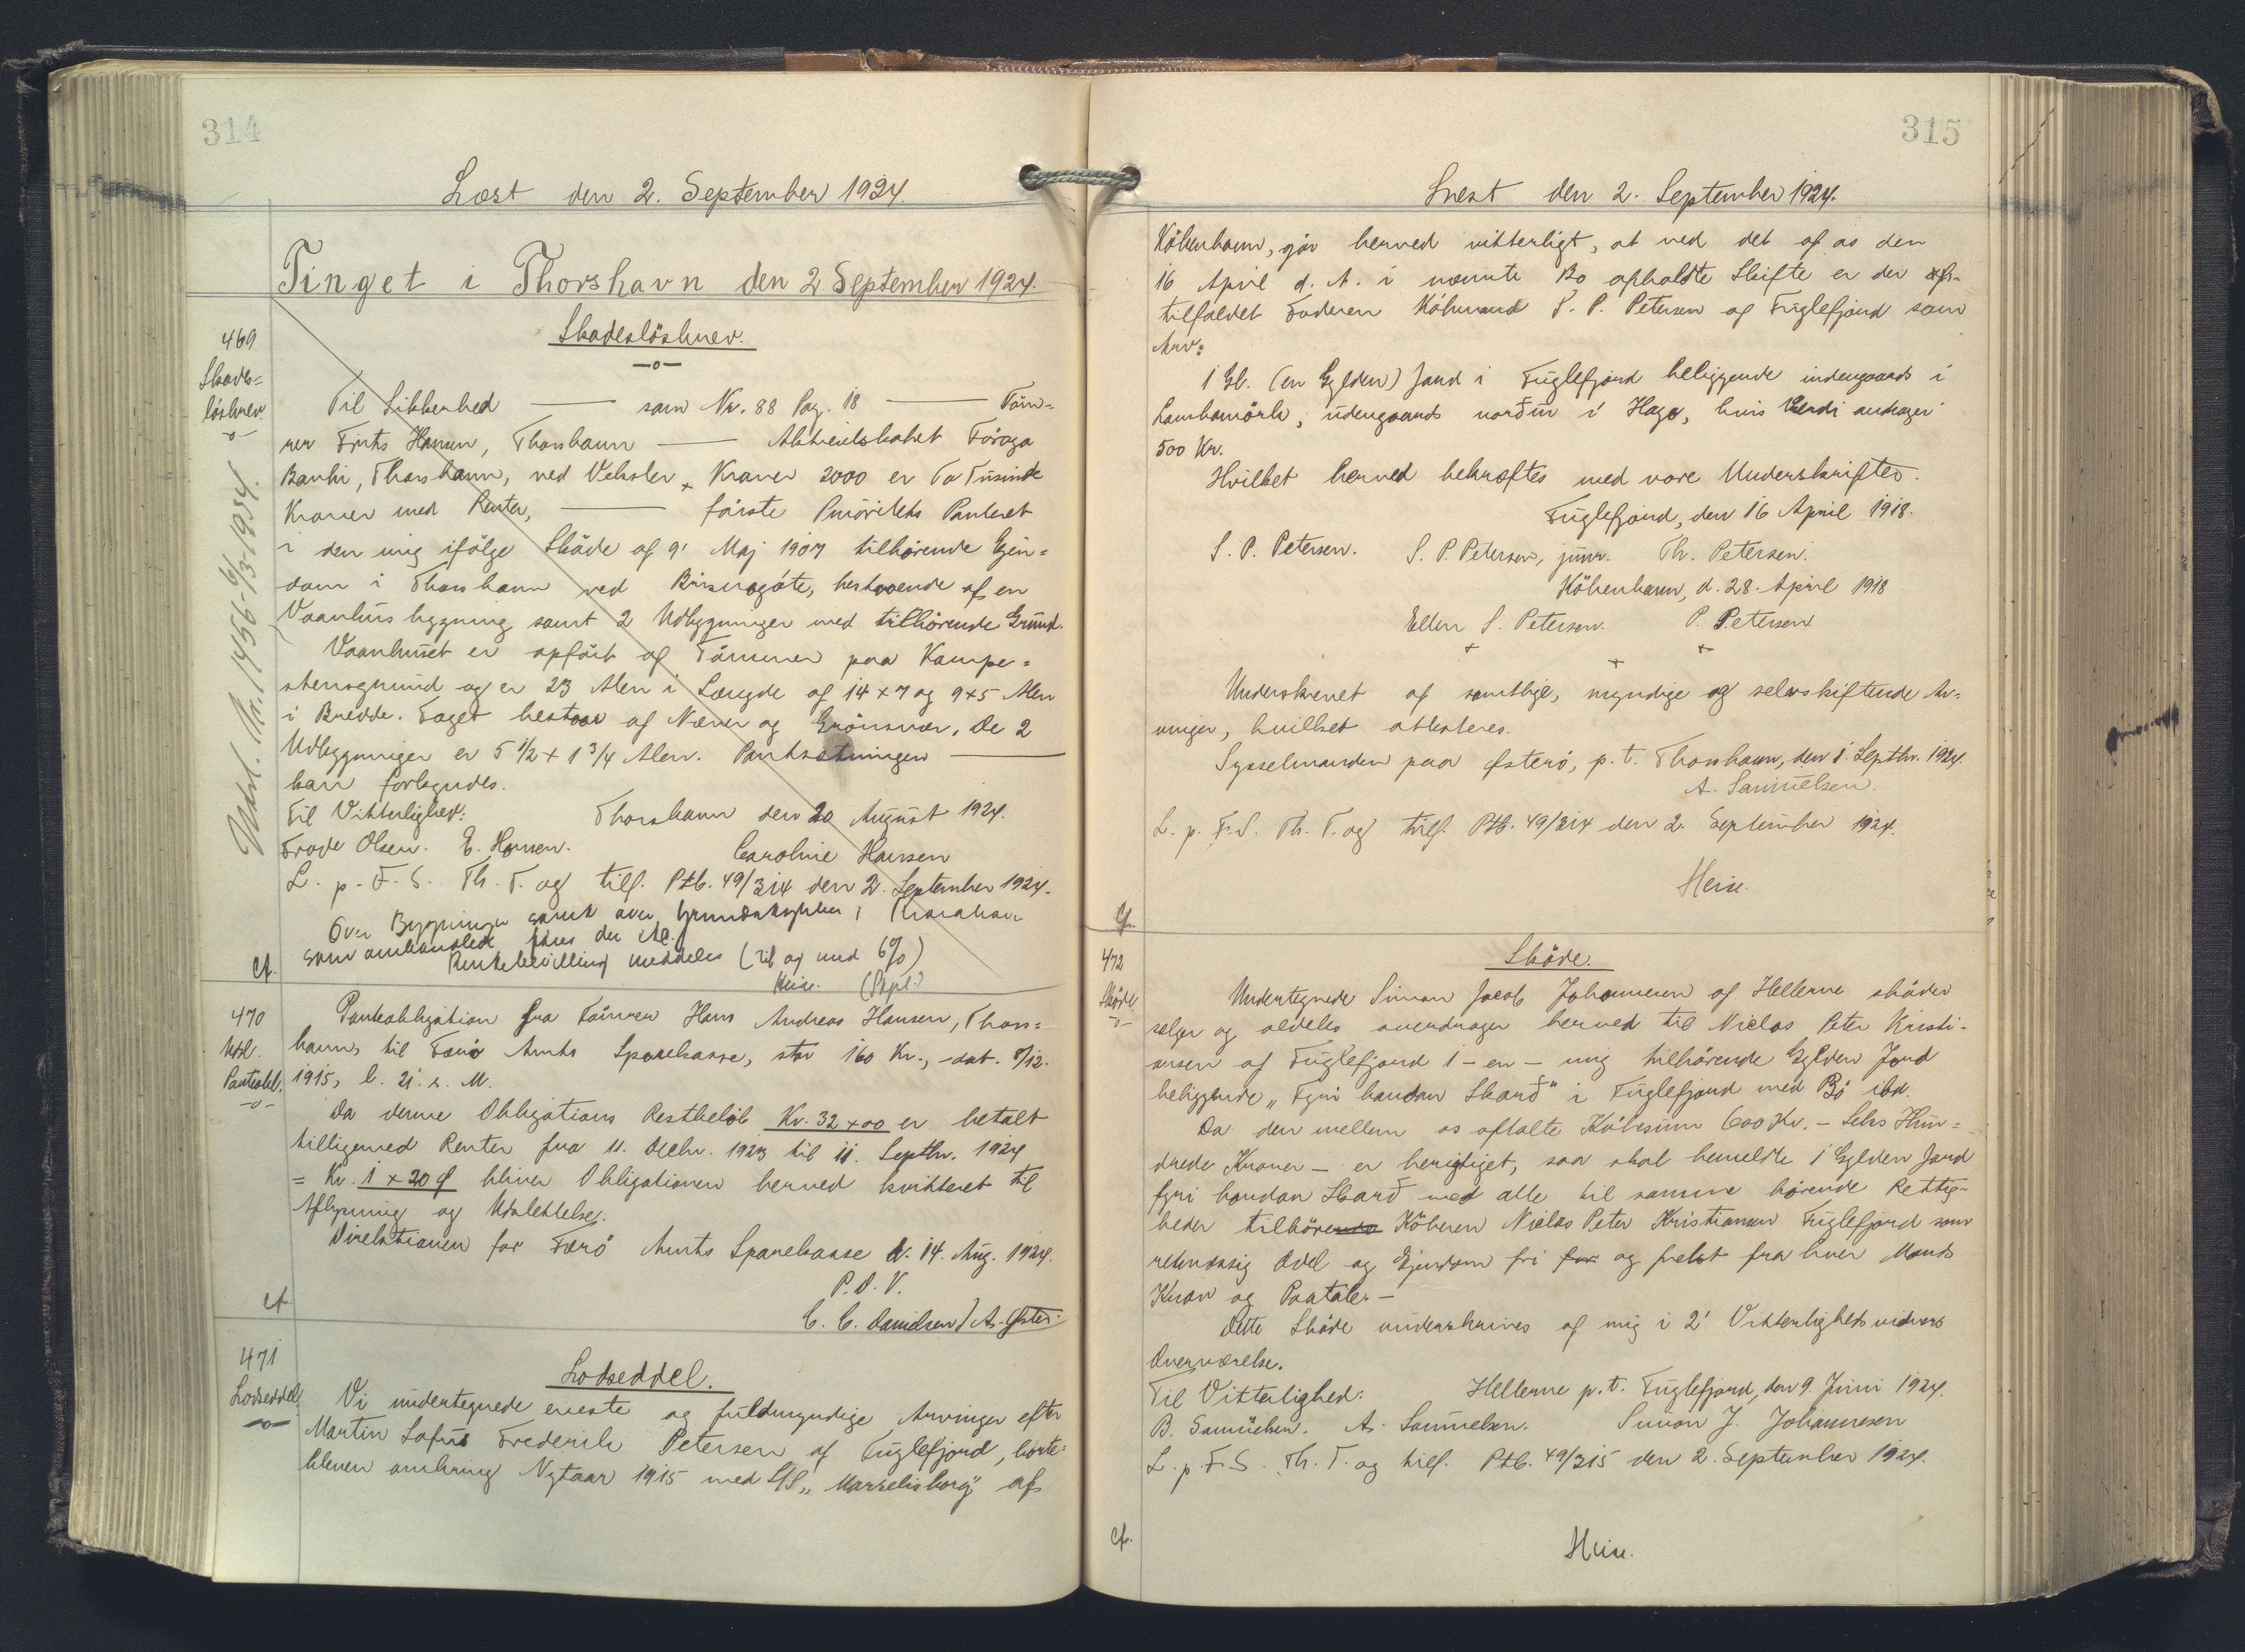 314
Læst den 2. September 1924.
Tinget i Thorshavn den 2 September 1924.
Skadesløsbrev.
-o-
469
Skades=
løsbrev
-o-
Udsl. No. 1456-6/3-1934.
Til Sikkerhed — som Nr. 88 Pag. 18 — Tøm=
rer Frits Hansen, Thorshavn — Aktieselskabet Føroya
Banki, Thorshavn, ved Veksler + Kroner 2000 er To Tusinde
Kroner med Renter, — første Prioritets Panteret
i den mig ifølge Skøde af 9' Maj 1907 tilhørende Ejen=
dom i Thorshavn ved Bringsnagøte, bestaaende af en
Vaanhus bygning samt 2 Udbygninger med tilhørende Grund.
Vaanhuset er opført af Tømmer paa Kampe=
stensgrund og er 23 Alen i Længde og 14 x 7 og 9 x 5 Alen
i Bredde. Taget bestaar af Næver og Grønsvær. De 2
Udbygninger er 5 1/2 x 1 3/4 Alen. Pantsætningen —
kan forlegndes.
Til Vitterlighed: Thorshavn den 20 August 1924.
Frode Olsen. E. Hansen. Caroline Hansen
L. p. F. S. Th. T. og tilf. Ptb. 49/314 den 2. September 1924.
Over Bygninger samt over Grundstykker i Thorshavn
som omhandlet føres der ikke
Rentebevilling meddeles (til og med 6%)
Heise. (Pkpl.)
Cf.
470
Udsl.
Panteobl.
-o-
Panteobligation fra Tømrer Hans Andreas Hansen, Thors=
havn, til Færø Amts Sparekasse, stor 160 Kr., dat. 8/12.
1915, l. 21. s. M.
Da denne Obligations Restbeløb Kr. 32 x 00 er betalt
tilligemed Renter fra 11. Decbr. 1923 til 11. Septbr. 1924
= Kr. 1 x 20 Ø bliver Obligationen herved kvitteret til
Aflysning og Udslettelse.
Direktionen for Færø Amts Sparekasse d. 14. Aug. 1924.
P. D. V.
C. C. Danielsen / A. Øster
Cf.
471
Lodseddel
-o-
Lodseddel.
Vi undertegnede eneste og fuldmyndige Arvinger efter
Martin Lofus Frederik Petersen af Fuglefjord, borte=
bleven omkring Nytaar 1915 med S/S „Marselisborg" af
315
Læst den 2. September 1924.
København, gør herved vitterligt, at ved det af os den
16 April d. A. i nævnte Bo afholdte Skifte er der
tilfaldet Faderen Købmand S. P. Petersen af Fuglefjord som
Arv:
1 Gl. (en Gylden) Jord i Fuglefjord beliggende indengaards i
Lambamørk, udengaards norður i Haga, hvis Værdi andrager
500 Kr.
Hvilket herved bekræftes med vore Underskrifter.
Fuglefjord, den 16 April 1918.
S. P. Petersen. S. P. Petersen, junr. Th. Petersen.
København, d. 28. April 1918
Ellen S. Petersen. P. Petersen
+ + +
Underskrevet af samtlige, myndige og selvskiftende Ar=
vinger, hvilket attesteres.
Sysselmanden paa Østerø, p. t. Thorshavn, den 1. Septbr. 1924.
A. Samuelsen.
L. p. F. S. Th. T. og tilf. Ptb. 49/314 den 2. September 1924.
Heise.
Cf.
472
Skøde
-o-
Skøde.
Undertegnede Simon Jacob Johannesen af Hellerne skøder
sælger og aldeles overdrager herved til Niclas Peter Kristi-
ansen af Fuglefjord 1 - en - mig tilhørende Gylden Jord
beliggende „Fyri handan Skarð" i Fuglefjord med Bø ibd.
Da den mellem os aftalte Købesum 600 Kr. - Seks Hun=
drede Kroner - er berigtiget, saa skal bemeldte 1 Gylden Jord
fyri handan Skarð med alle til samme hørende Rettig-
heder tilhørende Køberen Niclas Peter Kristiansen Fuglefjord som
retmæssig Odel og Ejendom fri for og frelst fra hver Mands
Krav og Paatale. -
Dette Skøde underskrives af mig i 2' Vitterlighedsvidners
Overværelse.
Til Vitterlighed: Hellerne p. t. Fuglefjord, den 9. Juni 1924.
B. Samuelsen. A. Samuelsen. Simon J. Johannesen
L. p. F. S. Th. T. og tilf. Ptb. 49/315 den 2. September 1924.
Cf.
Heise.